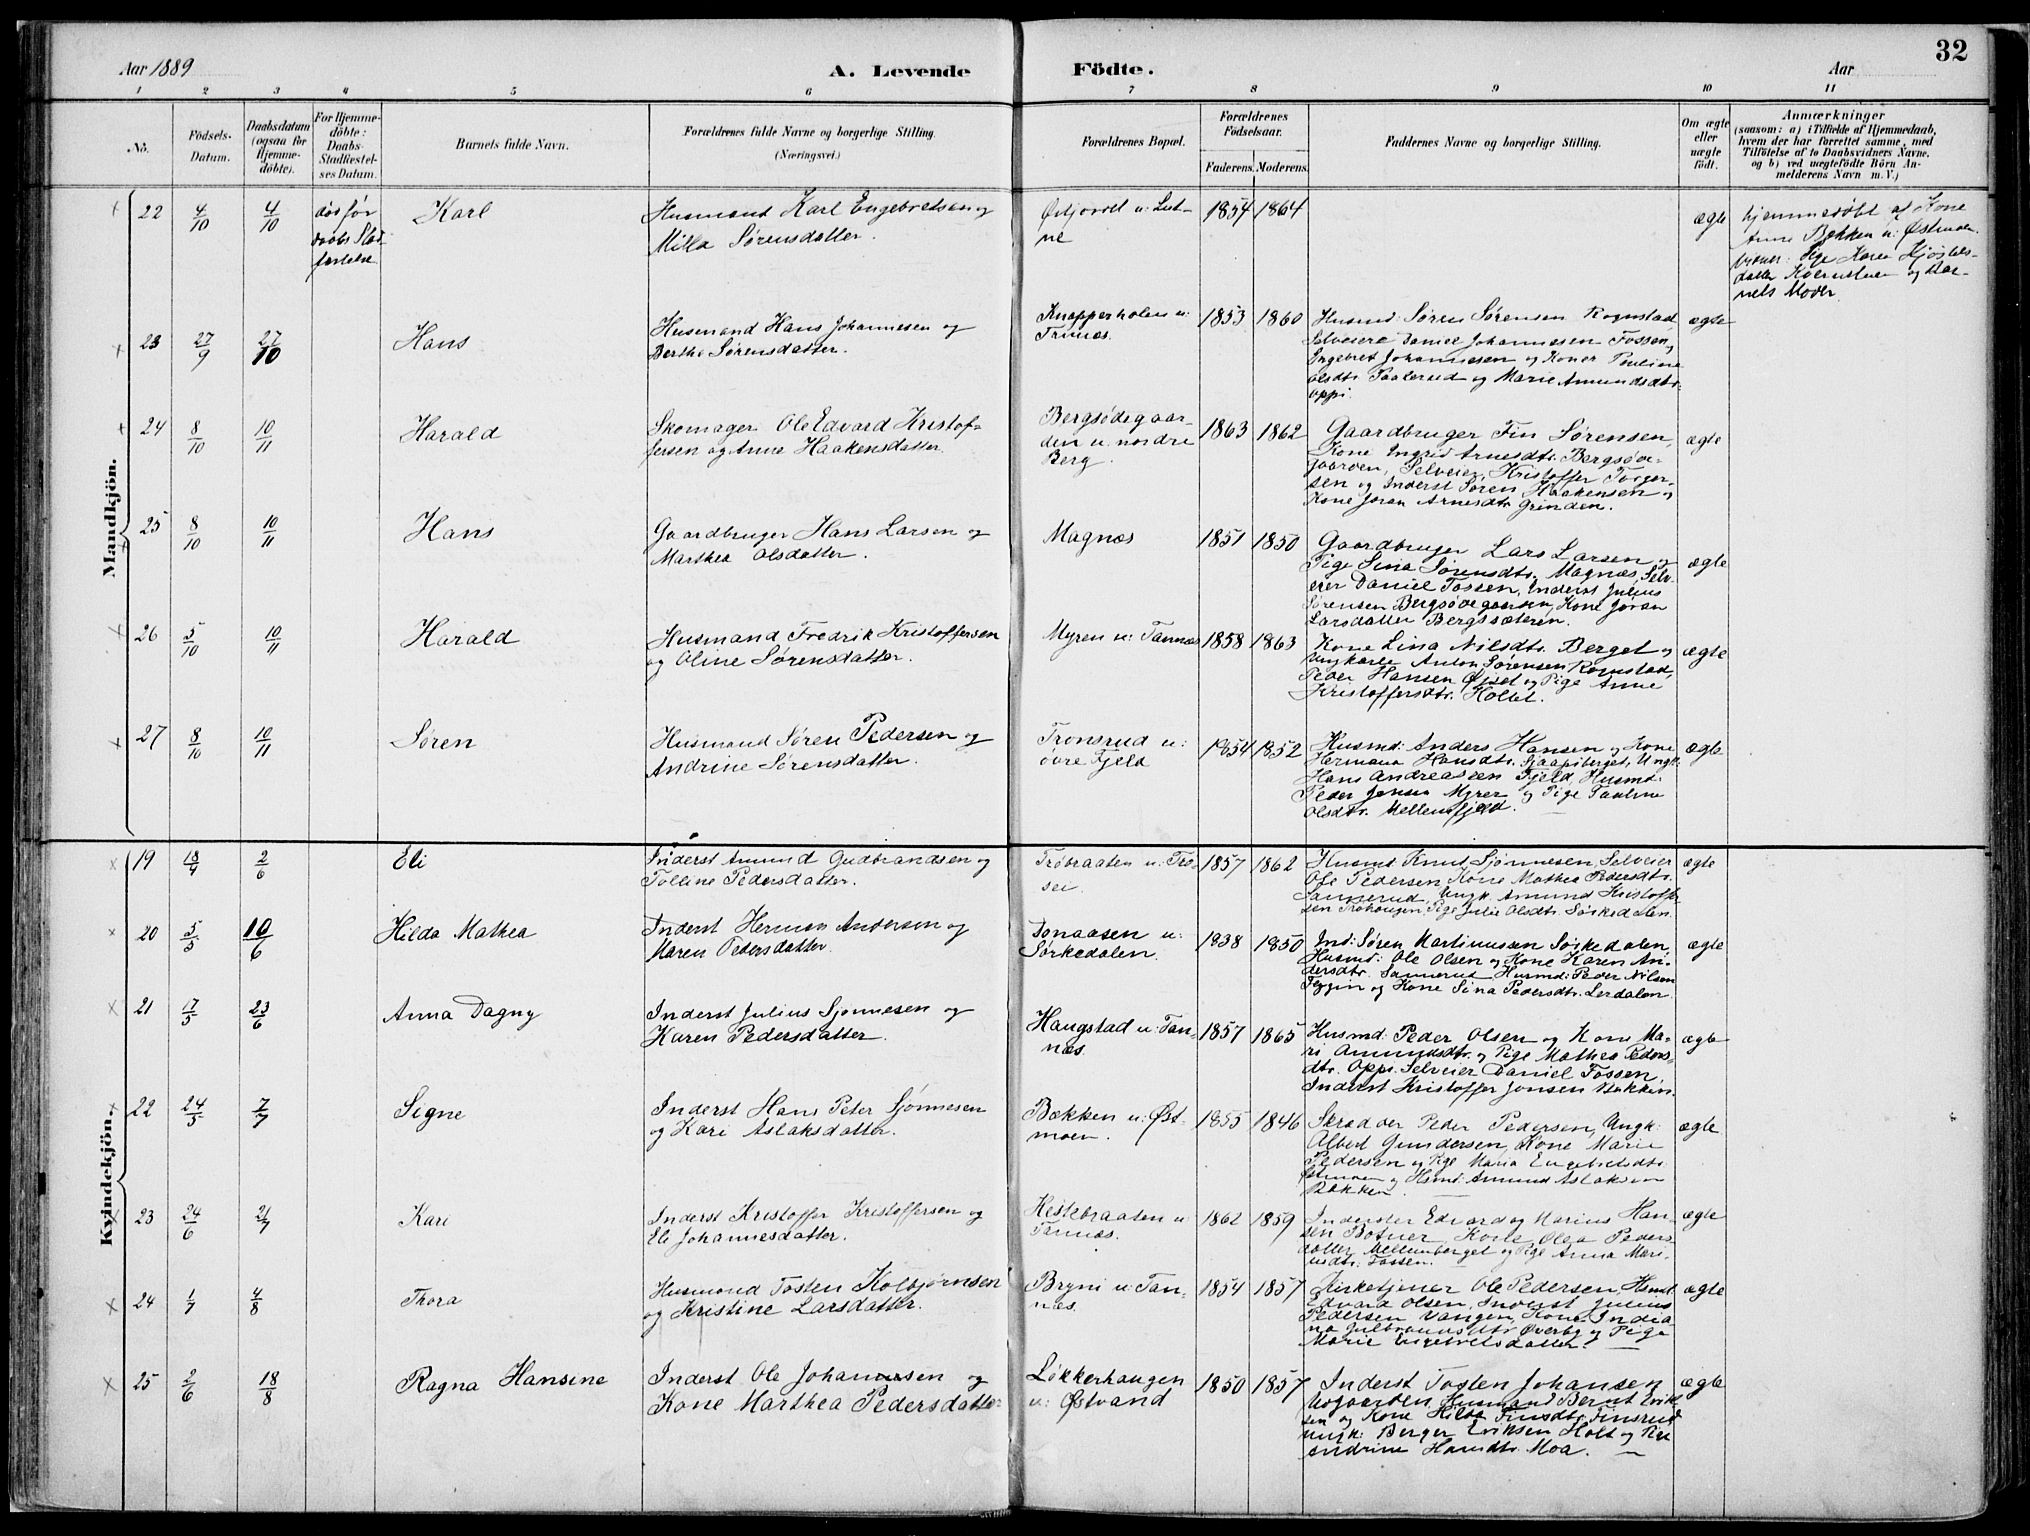 32
Aar 1889
A. Levende Födte.
Aar
1 2 3 4 5 6 7 8 9 10 11
No.
Födsels-Datum.
Daabsdatum (ogsaa for Hjemme-döbte).
For Hjemme-döbte: Daabs-Stadfæstel-ses Datum.
Barnets fulde Navn.
Forældrenes fulde Navne og borgerlige Stilling.
(Næringsvei.)
Forældrenes Bopæl.
Forældrenes Födselsaar.
Faderens. Moderens.
Faddernes Navne og borgerlige Stilling.
Om ægte eller uægte födt.
Anmærkninger
(saasom: a) i Tilfælde af Hjemmedaab,
hvem der har forrettet samme, med
Tilföielse af to Daabsvidners Navne,
og b) ved uægtefödte Börn An-
melderens Navn m. V.)
Mandkjön.
22 4/10 4/10 død før daabs Stadfæstelse Karl
Husmand Karl Engebretsen og
Milla Sørensdatter.
1854 1864 ægte
hjemmedøbt af Kone
Anne Bækken u: Østmoen.
23 27/9 27/10 Hans
Husmand Hans Johannesen og
Berthe Sørensdatter.
Knapperholen u:
Tannæs.
1853 1860
Husmd. Søren Sørensen Rognstad,
Selveiere Daniel Johannesen Fossen,
Engebret Johannesen og Koner Pauline
Olsdtr. Paalerud og Marie Amundsdtr.
Oppi.
ægte
24 8/10 10/11 Harald
Skomager Ole Edvard Kristof-
fersen og Anne Haakensdatter.
Bergsødegaar-
den u. nordre
Berg.
1863 1862
Gaardbruger Fin Sørensen,
Kone Ingrid Arnesdtr. Bergsøde-
gaarden, Selveier Kristoffer Torger-
sen og Inderst Søren Haakensen og
Kone Joran Arnesdtr. Grinden.
ægte
25 8/10 10/11 Hans
Gaardbruger Hans Larsen og
Marthea Olsdatter.
Magnæs
1851 1850
Gaardbruger Lars Larsen og
Pige Lina Sørensdtr. Magnæs, Selv-
eier Daniel Fossen, Inderst Julius
Sørensen Bergsødegaarden, Kone Joran
Larsdatter Bergsæteren.
ægte
26 5/10 10/11 Harald
Husmand Fredrik Kristoffersen
og Oline Sørensdatter.
Myren u: Tannæs
1858 1863
Kone Lina Nilsdtr. Berget og
Ungkarle Anton Sørensen Rognstad,
Peder Hansen Øiset og Pige Anne
Kristoffersdtr. Holtet.
ægte
27 8/10 10/11 Søren
Husmand Søren Pedersen og
Andrine Sørensdatter.
Tronsrud u:
øvre Fjeld
1854 1852
Husmd: Anders Hansen og Kone
Hermana Hansdtr. Skaapsberget, Ungk:
Hans Andreassen Fjeld, Husmd:
Peder Jensen Myrer og Pige Pauline
Olsdtr. Mellemfjeld.
ægte
Kvindekjön.
19 18/4 2/6 Eli
Inderst Amund Gudbrandsen og
Tolline Pedersdatter.
1857 1862
Husmd. Knud Sjønnesen, Selveier
Ole Pedersen, Kone Mathea Pedersdtr.
Sannerud, Ungk. Amund Kristoffer-
sen Frøhaugen, Pige Julie Olsdtr. Sørkedalen.
ægte
20 5/5 10/6 Hilda Mathea
Inderst Herman Andersen og
Maren Pedersdatter
Sørkedalen.
1838 1850
Ind: Søren Martinussen Sørkedalen,
Husmd: Ole Olsen og Kone Karen An-
dersdtr. Sannerud, Husmd: Peder Nilsen
Feggin og Kone Lina Pedersdtr. Lerdalen.
ægte
21 17/5 23/6 Anna Dagny
Inderst Julius Sjønnesen og
Karen Pedersdatter.
Haugstad u: Tan-
næs.
1857 1865
Husmd: Peder Olsen og Kone Ma-
ri Amundsdtr. og Pige Mathea Peders-
dtr. Oppi. Selveier Daniel Fossen,
Inderst Kristoffer Jonsen Bækken.
ægte
22 24/5 7/7 Signe
Inderst Hans Peter Sjønnesen
og Kari Aslaksdatter.
Bækken u: Øst-
moen.
1855 1846
Skræder Peder Pedersen, Ungk:
Albert Gundersen, Kone Marie
Pedersen og Pige Maria Engebretsdtr.
Østmoen og Hsmd: Amund Aslaksen
Bækken.
ægte
23 24/6 21/7 Kari
Inderst Kristoffer Kristoffersen og
Eli Johannesdatter.
Hestebraaten u:
Tannæs.
1862 1859
Inderster Edvard og Marius Han-
sen Botner, Kone Olea Peders-
datter Mellemberget og Pige Anna Mari-
usdtr. Fossen.
ægte
24 1/7 4/8 Thora
Husmand Tosten Kolbjørnsen
og Kristine Larsdatter.
Bryni u: Tan-
næs.
1854 1857
Kirketjener Ole Pedersen, Hsmd.
Edvard Olsen, Inderst Julius
Pedersen Vangen, Kone India-
na Gulbrandsdtr. Øverby og Pige
Marie Engebretsdatter.
ægte
25 2/6 18/8 Ragna Hansine
Inderst Ole Johannesen og
Kone Marthea Pedersdatter
Løkkerhaugen
u: Østvand
1850 1857
Inderst Tosten Johansen
Husmand Bernt Erik-
sen og Kone Hilda Finsdtr. Finsrud
Ungk: Berger Eriksen Holt og Pige
Andrine Hansdtr. Moa.
ægte